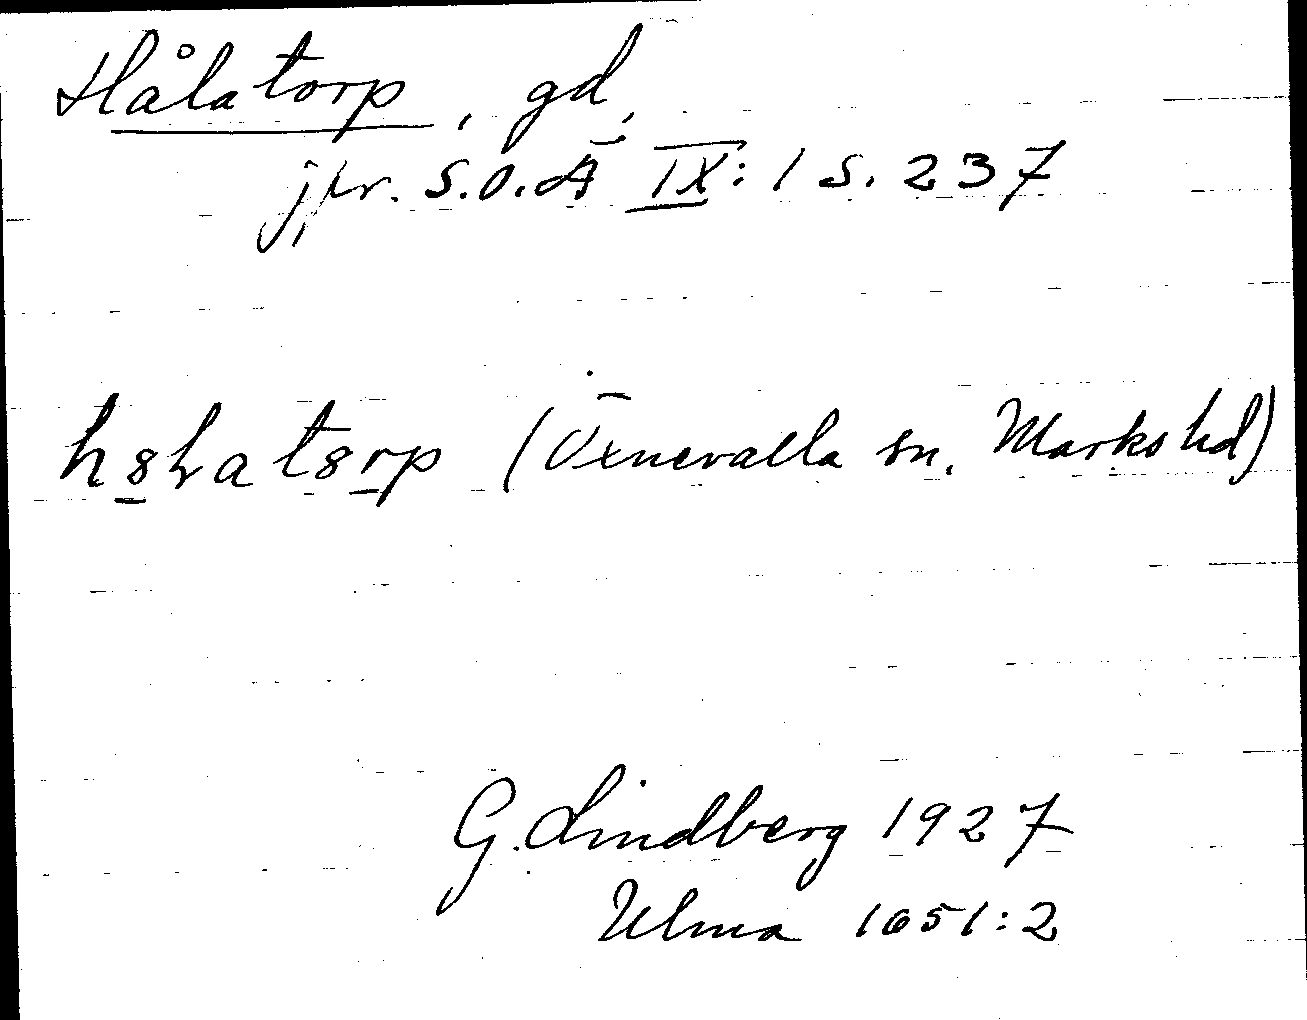 Hålatorp, gd,
jfr. S.O.Ä IX: 1 s. 237
h8lats8rp (Öxnevalla sn. Marks hd)
G. Lindberg 1927
Ulma 1651:2